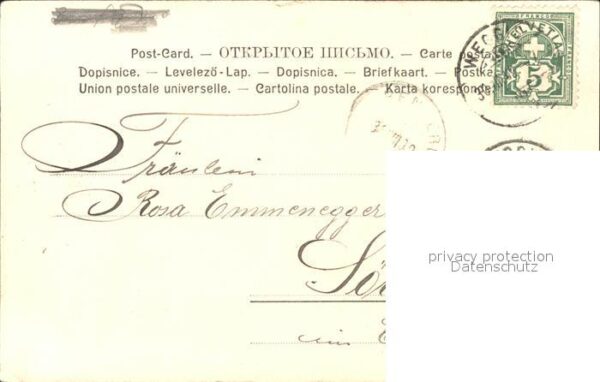 Post-Card. — ОТКРЫТОЕ ПИСЬМО. — Carte posta
Dopisnice. — Levelező-Lap. — Dopisnica. — Briefkaart. — Postka
Union postale universelle. — Cartolina postale. — Karta korespond
FRANCO
HELVETIA
5
WEGG
Fräulein
Rosa Emmenegger
Sör
im E
privacy protection
Datenschutz